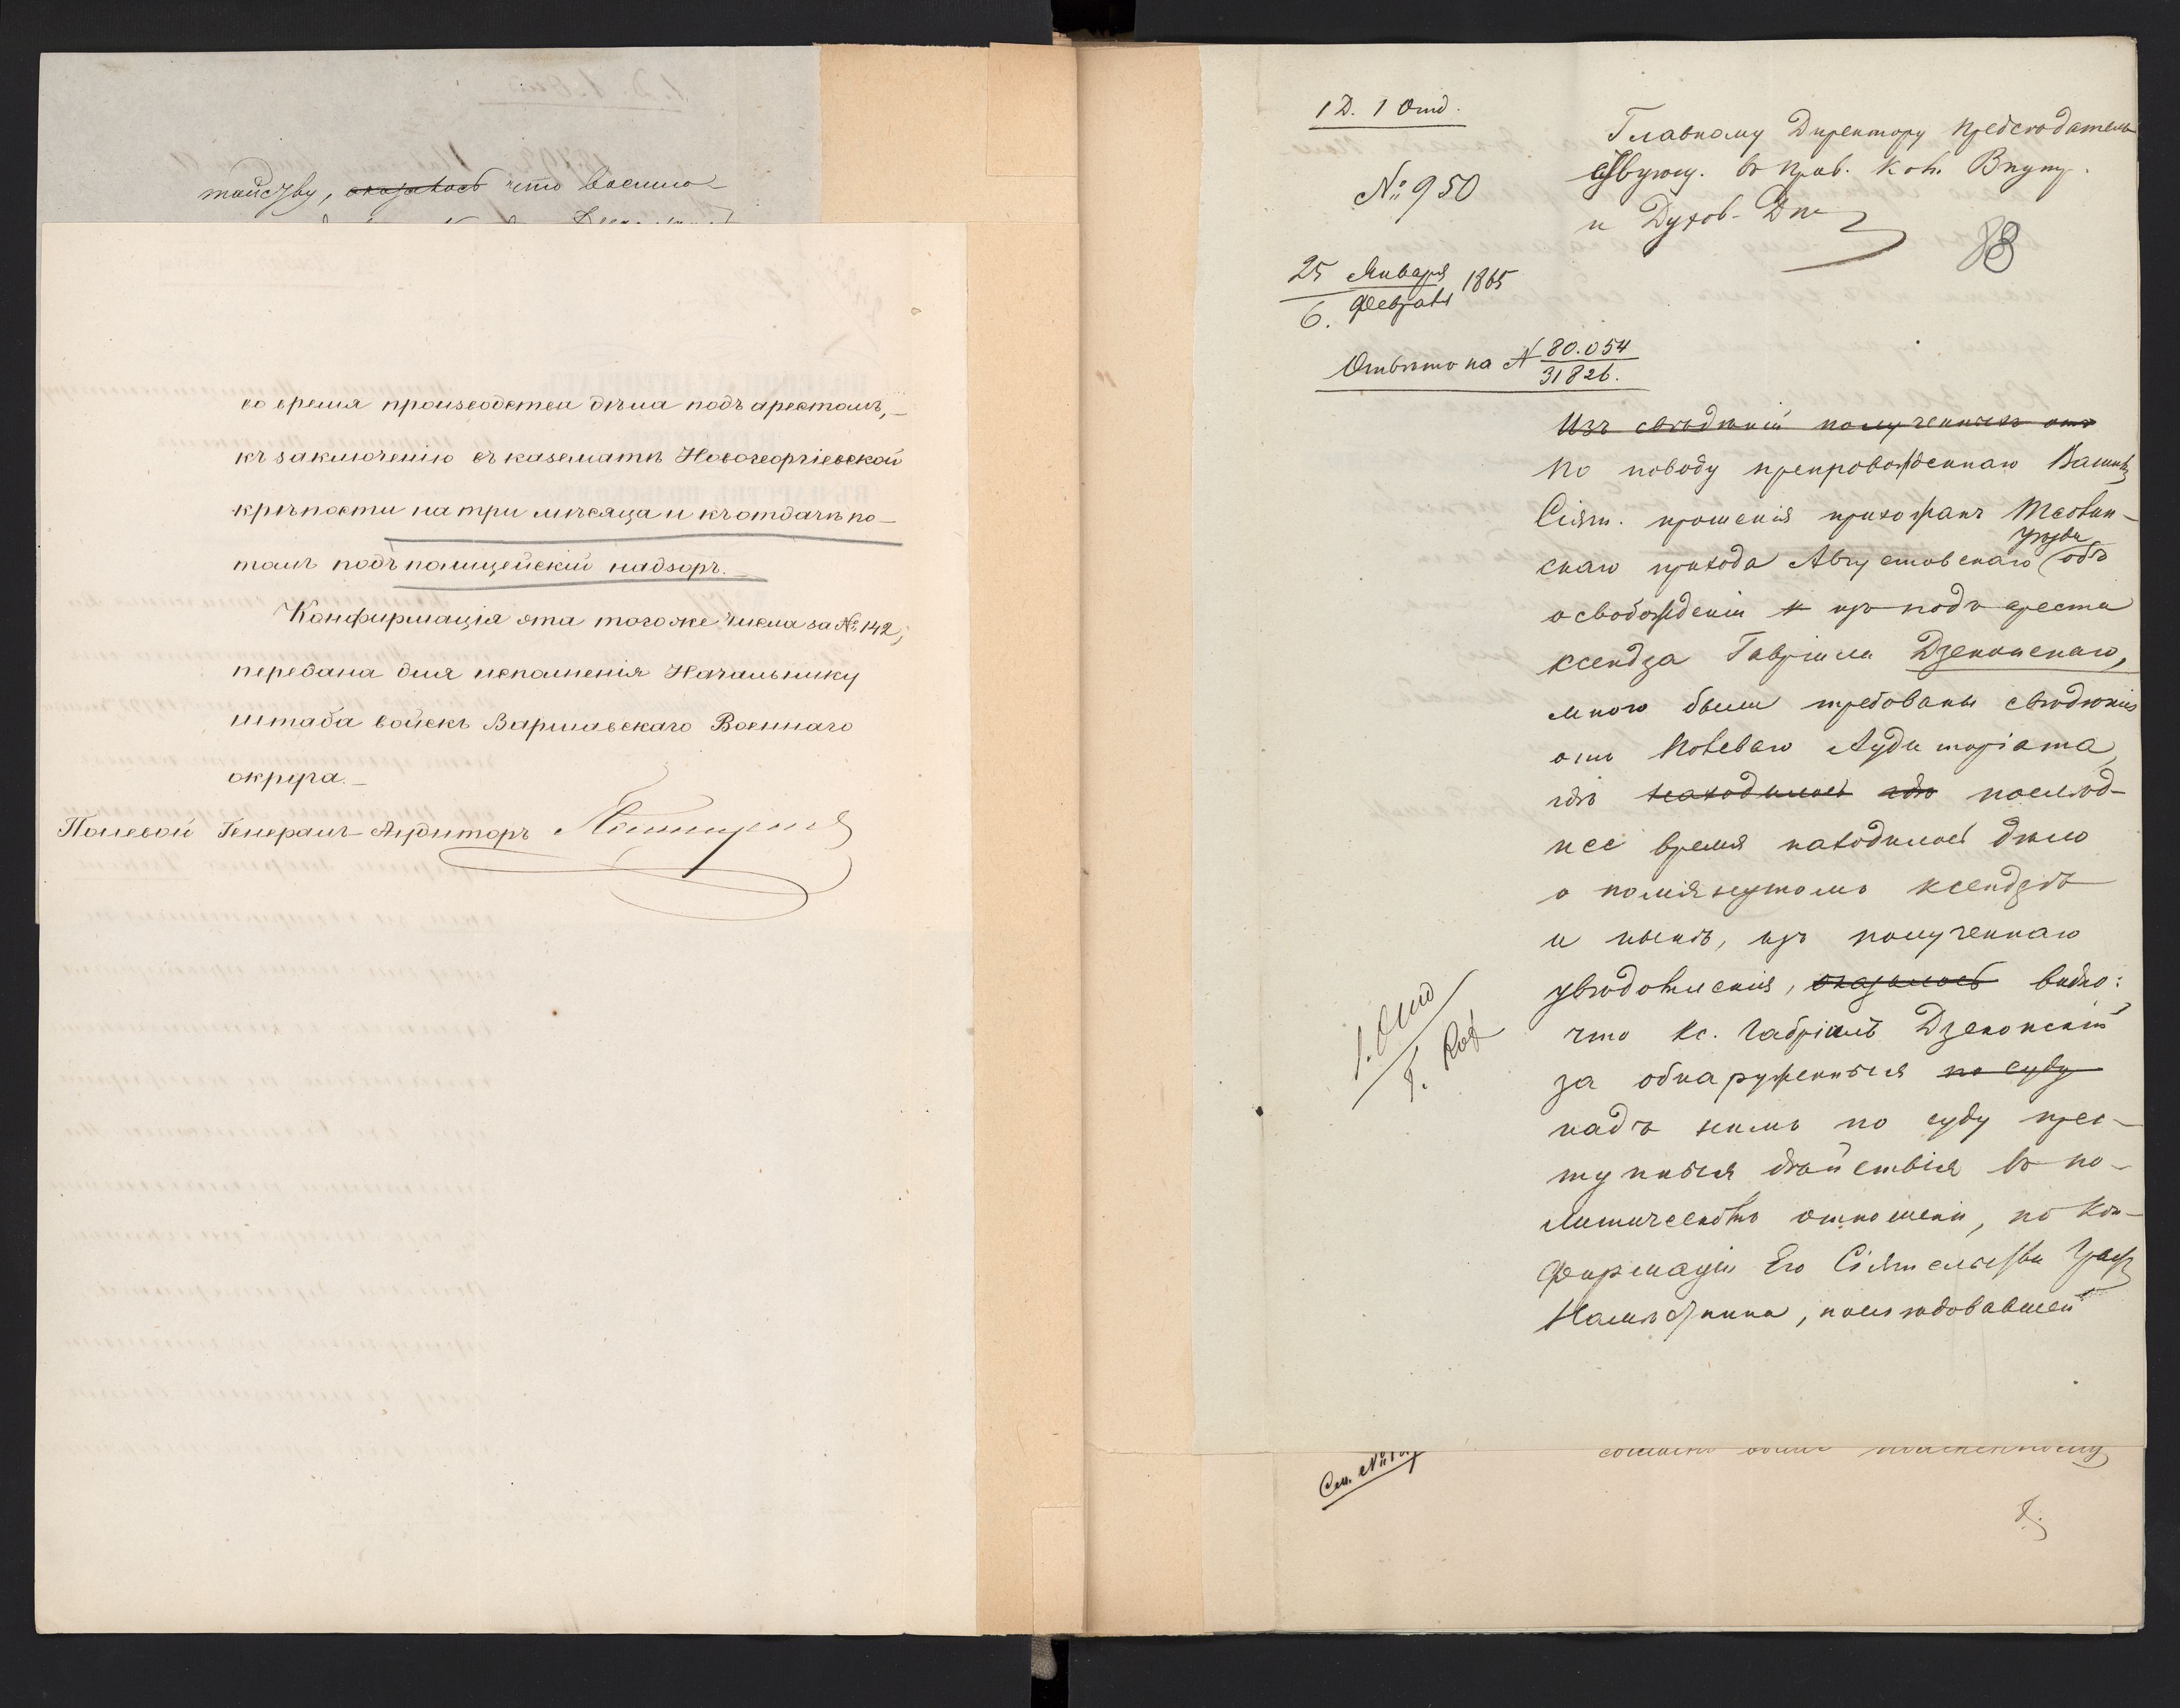 тайству, оказалось что военно-
во время производства дѣла подъ арестомъ,
къ заключенію въ казематъ Новогеоргіевской
крѣпости на три мѣсяца и къ отдачѣ по-
томъ подъ полицейскій надзоръ.
Конфирмація эта того же числа за № 142,
передана для исполненія Начальнику
штаба войскъ Варшавскаго Военнаго
округа.
Полевой Генералъ-Аудиторъ
1 Д. 1 Отд.
№ 950
25 Января
6. Февраля 1865
Отвѣтъ на №
80.054
31826.
Главному Директору Предсѣдатель
ствующ. въ Прав. Ком. Внутр.
и Духов. Дѣл
88
Изъ свѣдѣній полученныхъ отъ
По поводу препровожденнаго Вашимъ
Сіят. прошенія прихожанъ
скаго прихода Августовскаго уѣзда объ
освобожденіи изъ подъ ареста
ксендза Гавріила Дзеконскаго,
мною были требованы свѣдѣнія
отъ Полеваго Аудиторіата,
гдѣ находилось въ послѣд-
нее время находилось дѣло
о помянутомъ ксендзѣ
и нынѣ, изъ полученнаго
увѣдомленія, оказалось видно:
что Кс. Габріель Дзеконскій
за обнаруженныя по суду
надъ нимъ по суду прес-
тупныя дѣйствія въ по-
литическомъ отношеніи, по Кон-
фирмаціи Его Сіятельства Графа
Намѣстника, послѣдовавшей
1. Отд
См. №